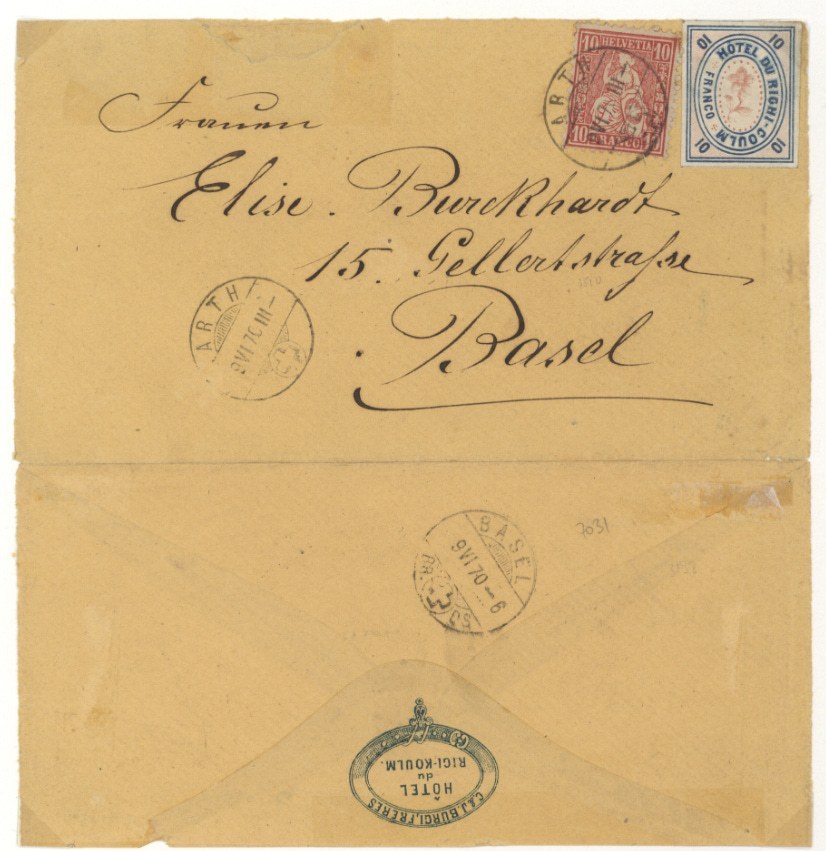 10 HELVETIA 10
10 FRANCO
ARTH
9 VI 70 III –
10 10
HÔTEL DU RIGHI-COULM
FRANCO
10 10
Frauen
Elise. Burckhardt
15. Gellertstraſse
Basel
ARTH
9 VI 70 III –
7031
BASEL
9 VI 70 – 6
C & J. BÜRGI, FRÈRES
HÔTEL
du
RIGI-KOULM.